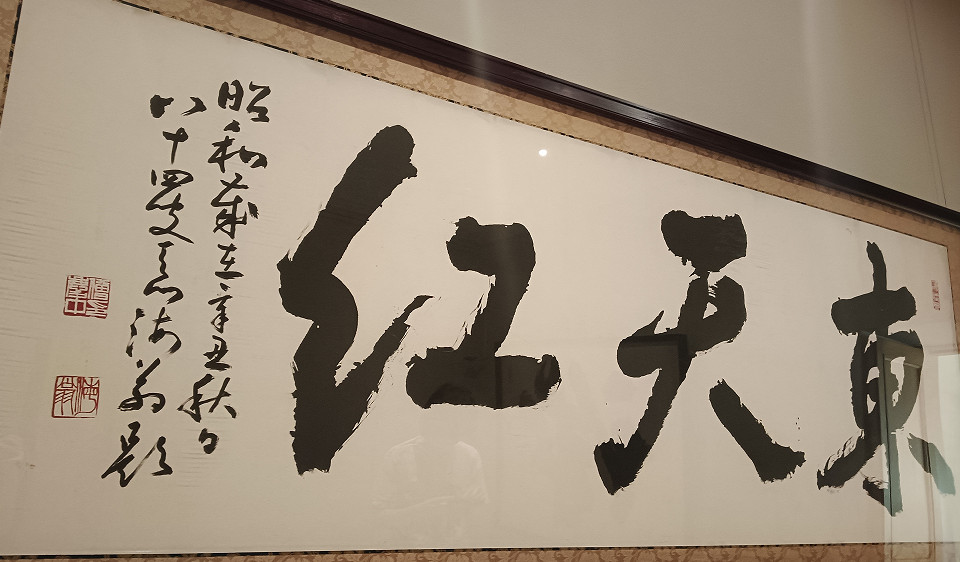 東天紅
昭和歳在辛丑秋日
八十四叟玄海翁題